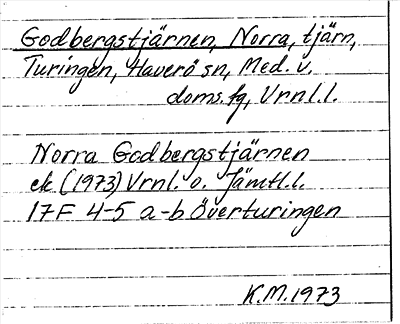 Godbergstjärnen, Norra, tjärn,
Turingen, Haverö sn, Med. v.
doms.fg, Vrnl.l.
Norra Godbergstjärnen
ek (1973) Vrnl. o. Jämtl.l.
17F 4-5 a-b Överturingen
K.M. 1973